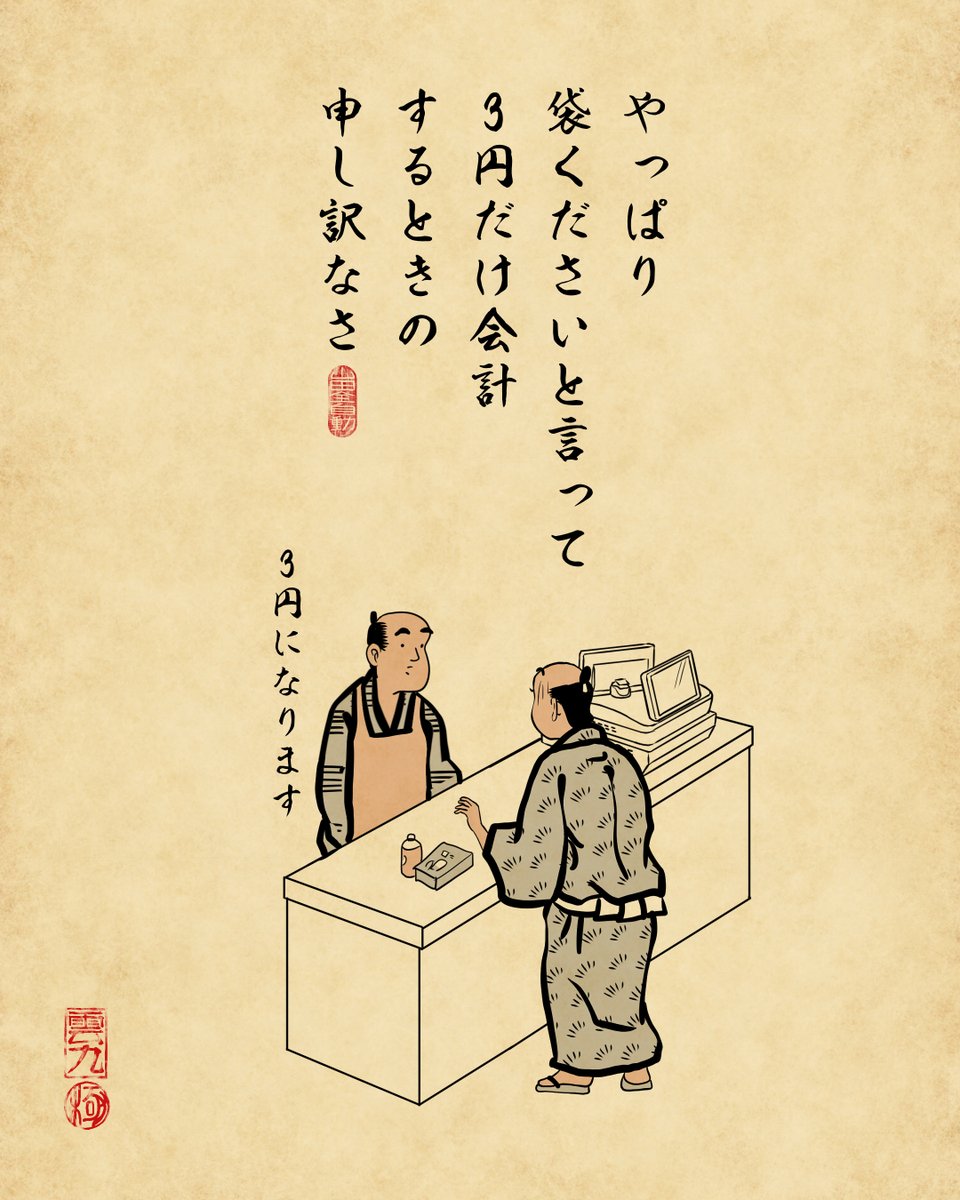 やっぱり
袋くださいと言って
3円だけ会計
するときの
申し訳なさ
3円になります